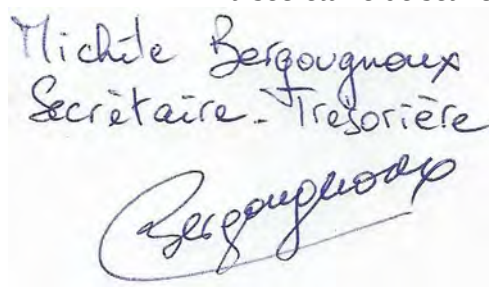 Michèle Bergougnoux
Secrètaire - Tresorière
Bergougnoux